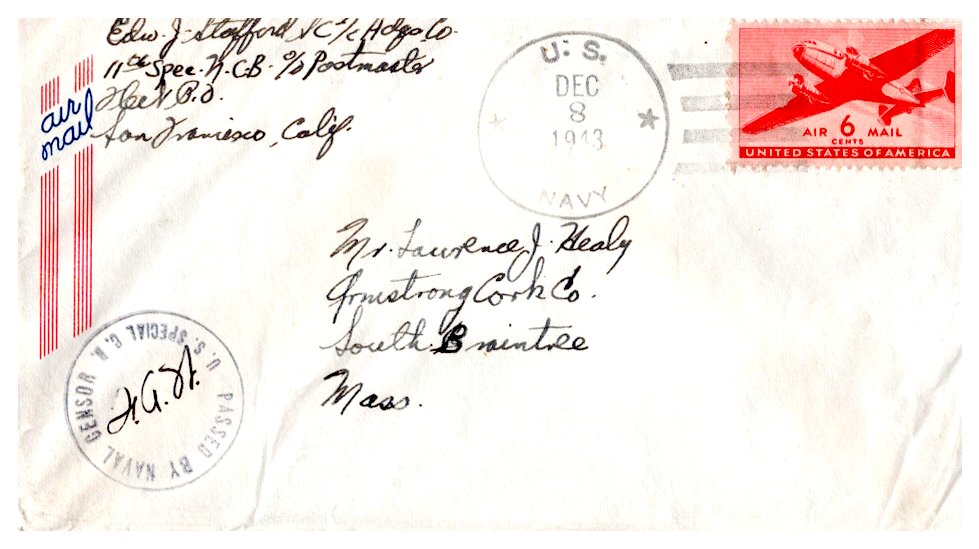 Edw. J. Stafford SC 1/c Hdqo Co.
11th Spec. N.C.B. c/o Postmaster
P.O.
San Francisco, Calif.
air
mail
U.S.
DEC
8
1943
NAVY
AIR 6 MAIL
CENTS
UNITED STATES OF AMERICA
Mr. Lawrence J. Healy
Armstrong Cork Co.
South Braintree
Mass.
PASSED BY NAVAL CENSOR
U. S. SPECIAL C. B.